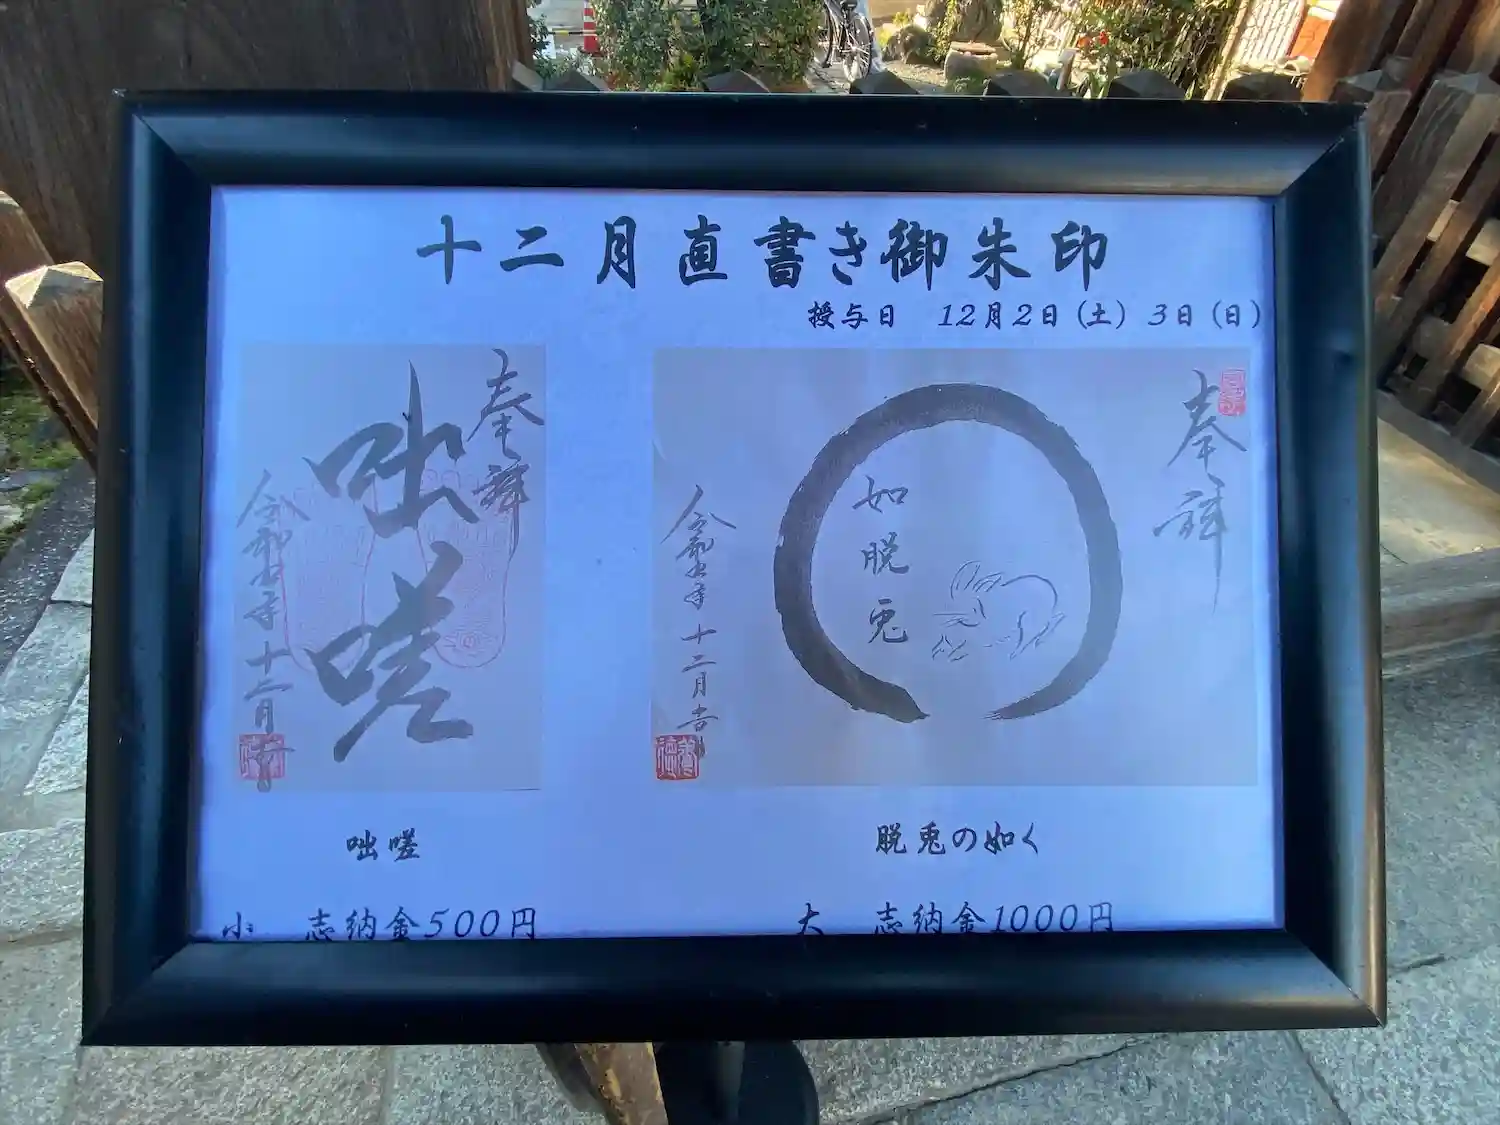 十二月直書き御朱印
授与日 12月2日(土) 3日(日)
奉拝
咄嗟
令和五年十二月
奉拝
如脱兎
令和五年十二月吉
咄嗟
脱兎の如く
小 志納金500円
大 志納金1000円